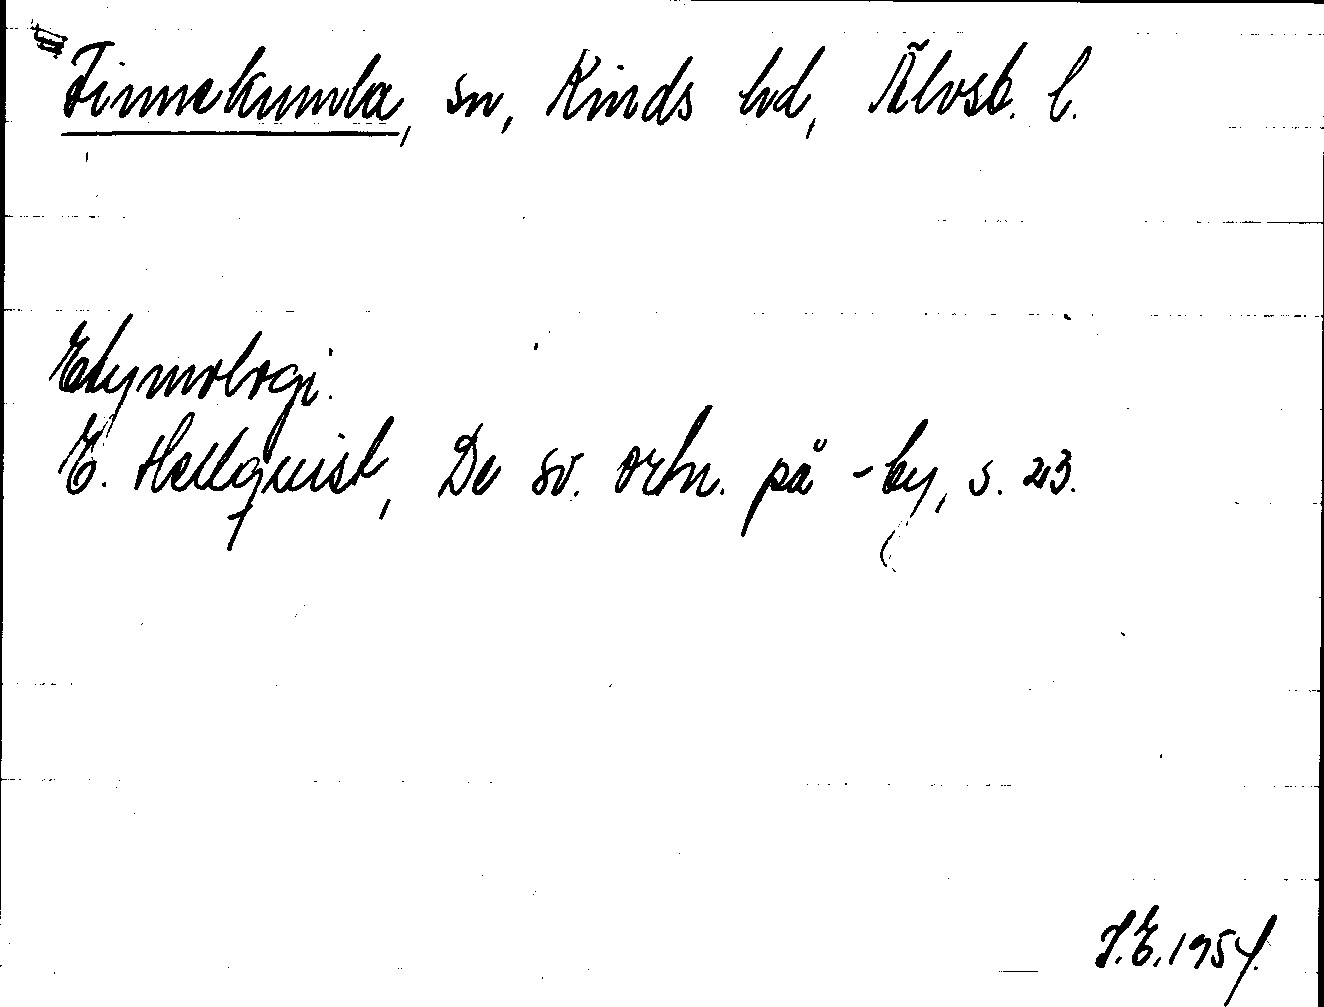 Finnekumla, sn, Kinds hd, Älvsb. l.
Etymologi.
E. Hellquist, De sv. ortn. på -by, s. 23.
S.E. 1954.